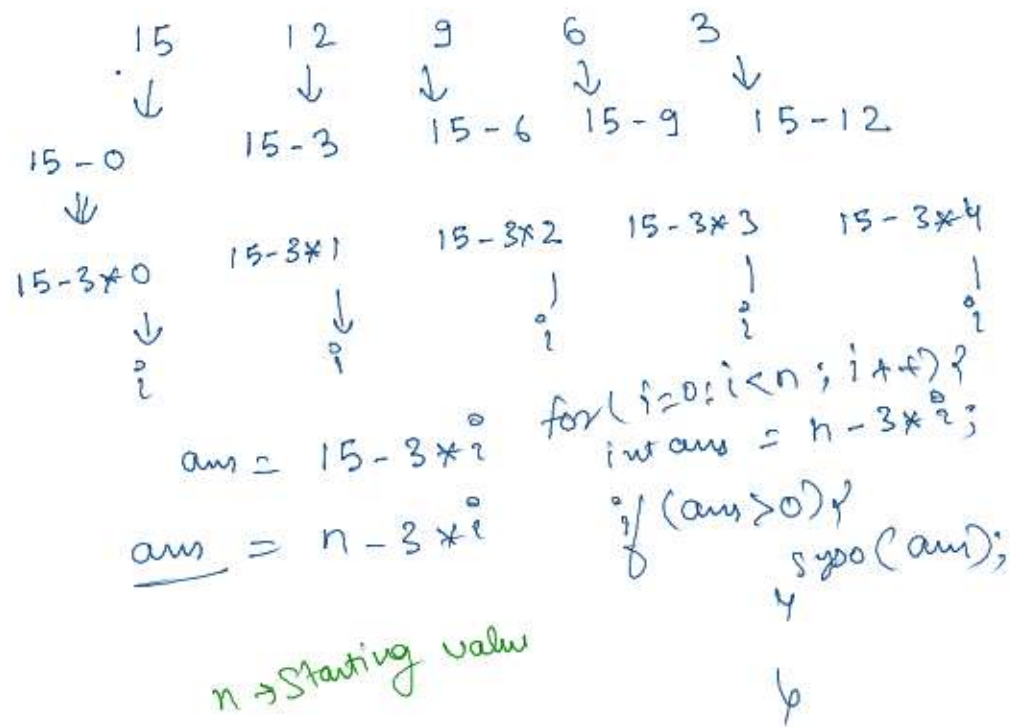 15 12 9 6 3
15-0 15-3 15-6 15-9 15-12
15-3*0 15-3*1 15-3*2 15-3*3 15-3*4
i i i i i
ans = 15-3*i
ans = n-3*i
for(i=0;i<n;i++){
int ans = n-3*i;
if(ans>0){
syso(ans);
}
}
n→Starting value